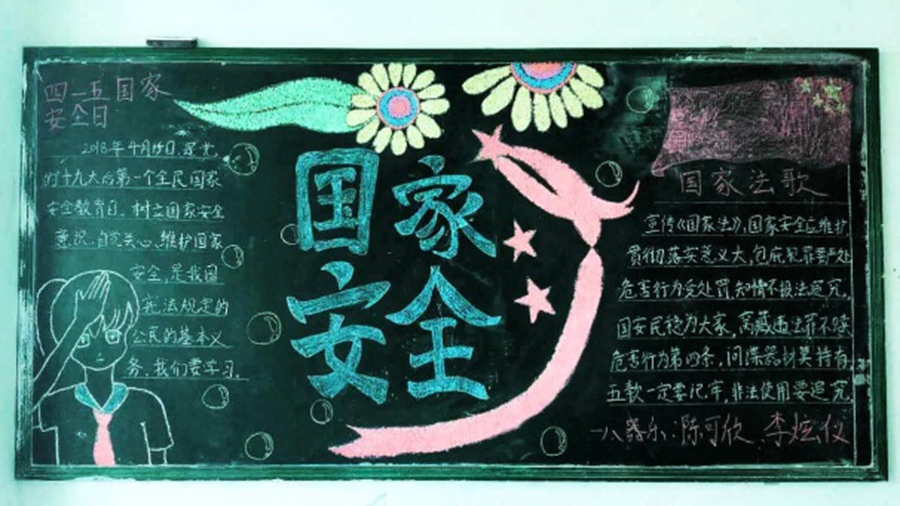 四一五国家
安全日
2018年4月15日,是党
的十九大后第一个全民国家
安全教育日。树立国家安全
意识,自觉关心、维护国家
安全,是我国
宪法规定的
公民的基本义
务。我们要学习。
国家
安全
国家法歌
宣传《国家法》,国家安全应维护
贯彻落实意义大,包庇犯罪要严处
危害行为受处罚,知情不报法追究,
国安民稳为大家,窝藏违法罪不赎
危害行为第四条,间谍器材莫持有
五款一定要记牢,非法使用要追究
一八器乐:陈可欣 李炫仪